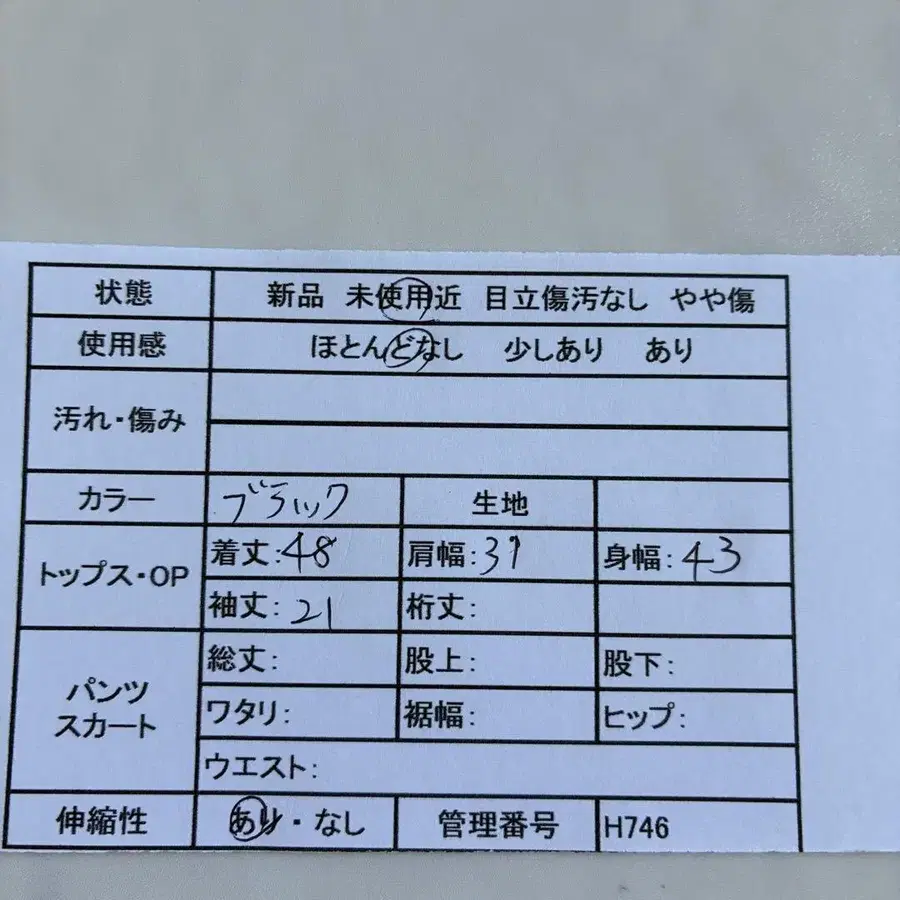 状態 新品 未使用近 目立傷汚なし やや傷
使用感 ほとんどなし 少しあり あり
汚れ・傷み
カラー ブラック 生地
トップス・OP 着丈:48 肩幅:37 身幅:43
袖丈: 21 裄丈:
パンツ
スカート
総丈: 股上: 股下:
ワタリ: 裾幅: ヒップ:
ウエスト:
伸縮性 あり・なし 管理番号 H746